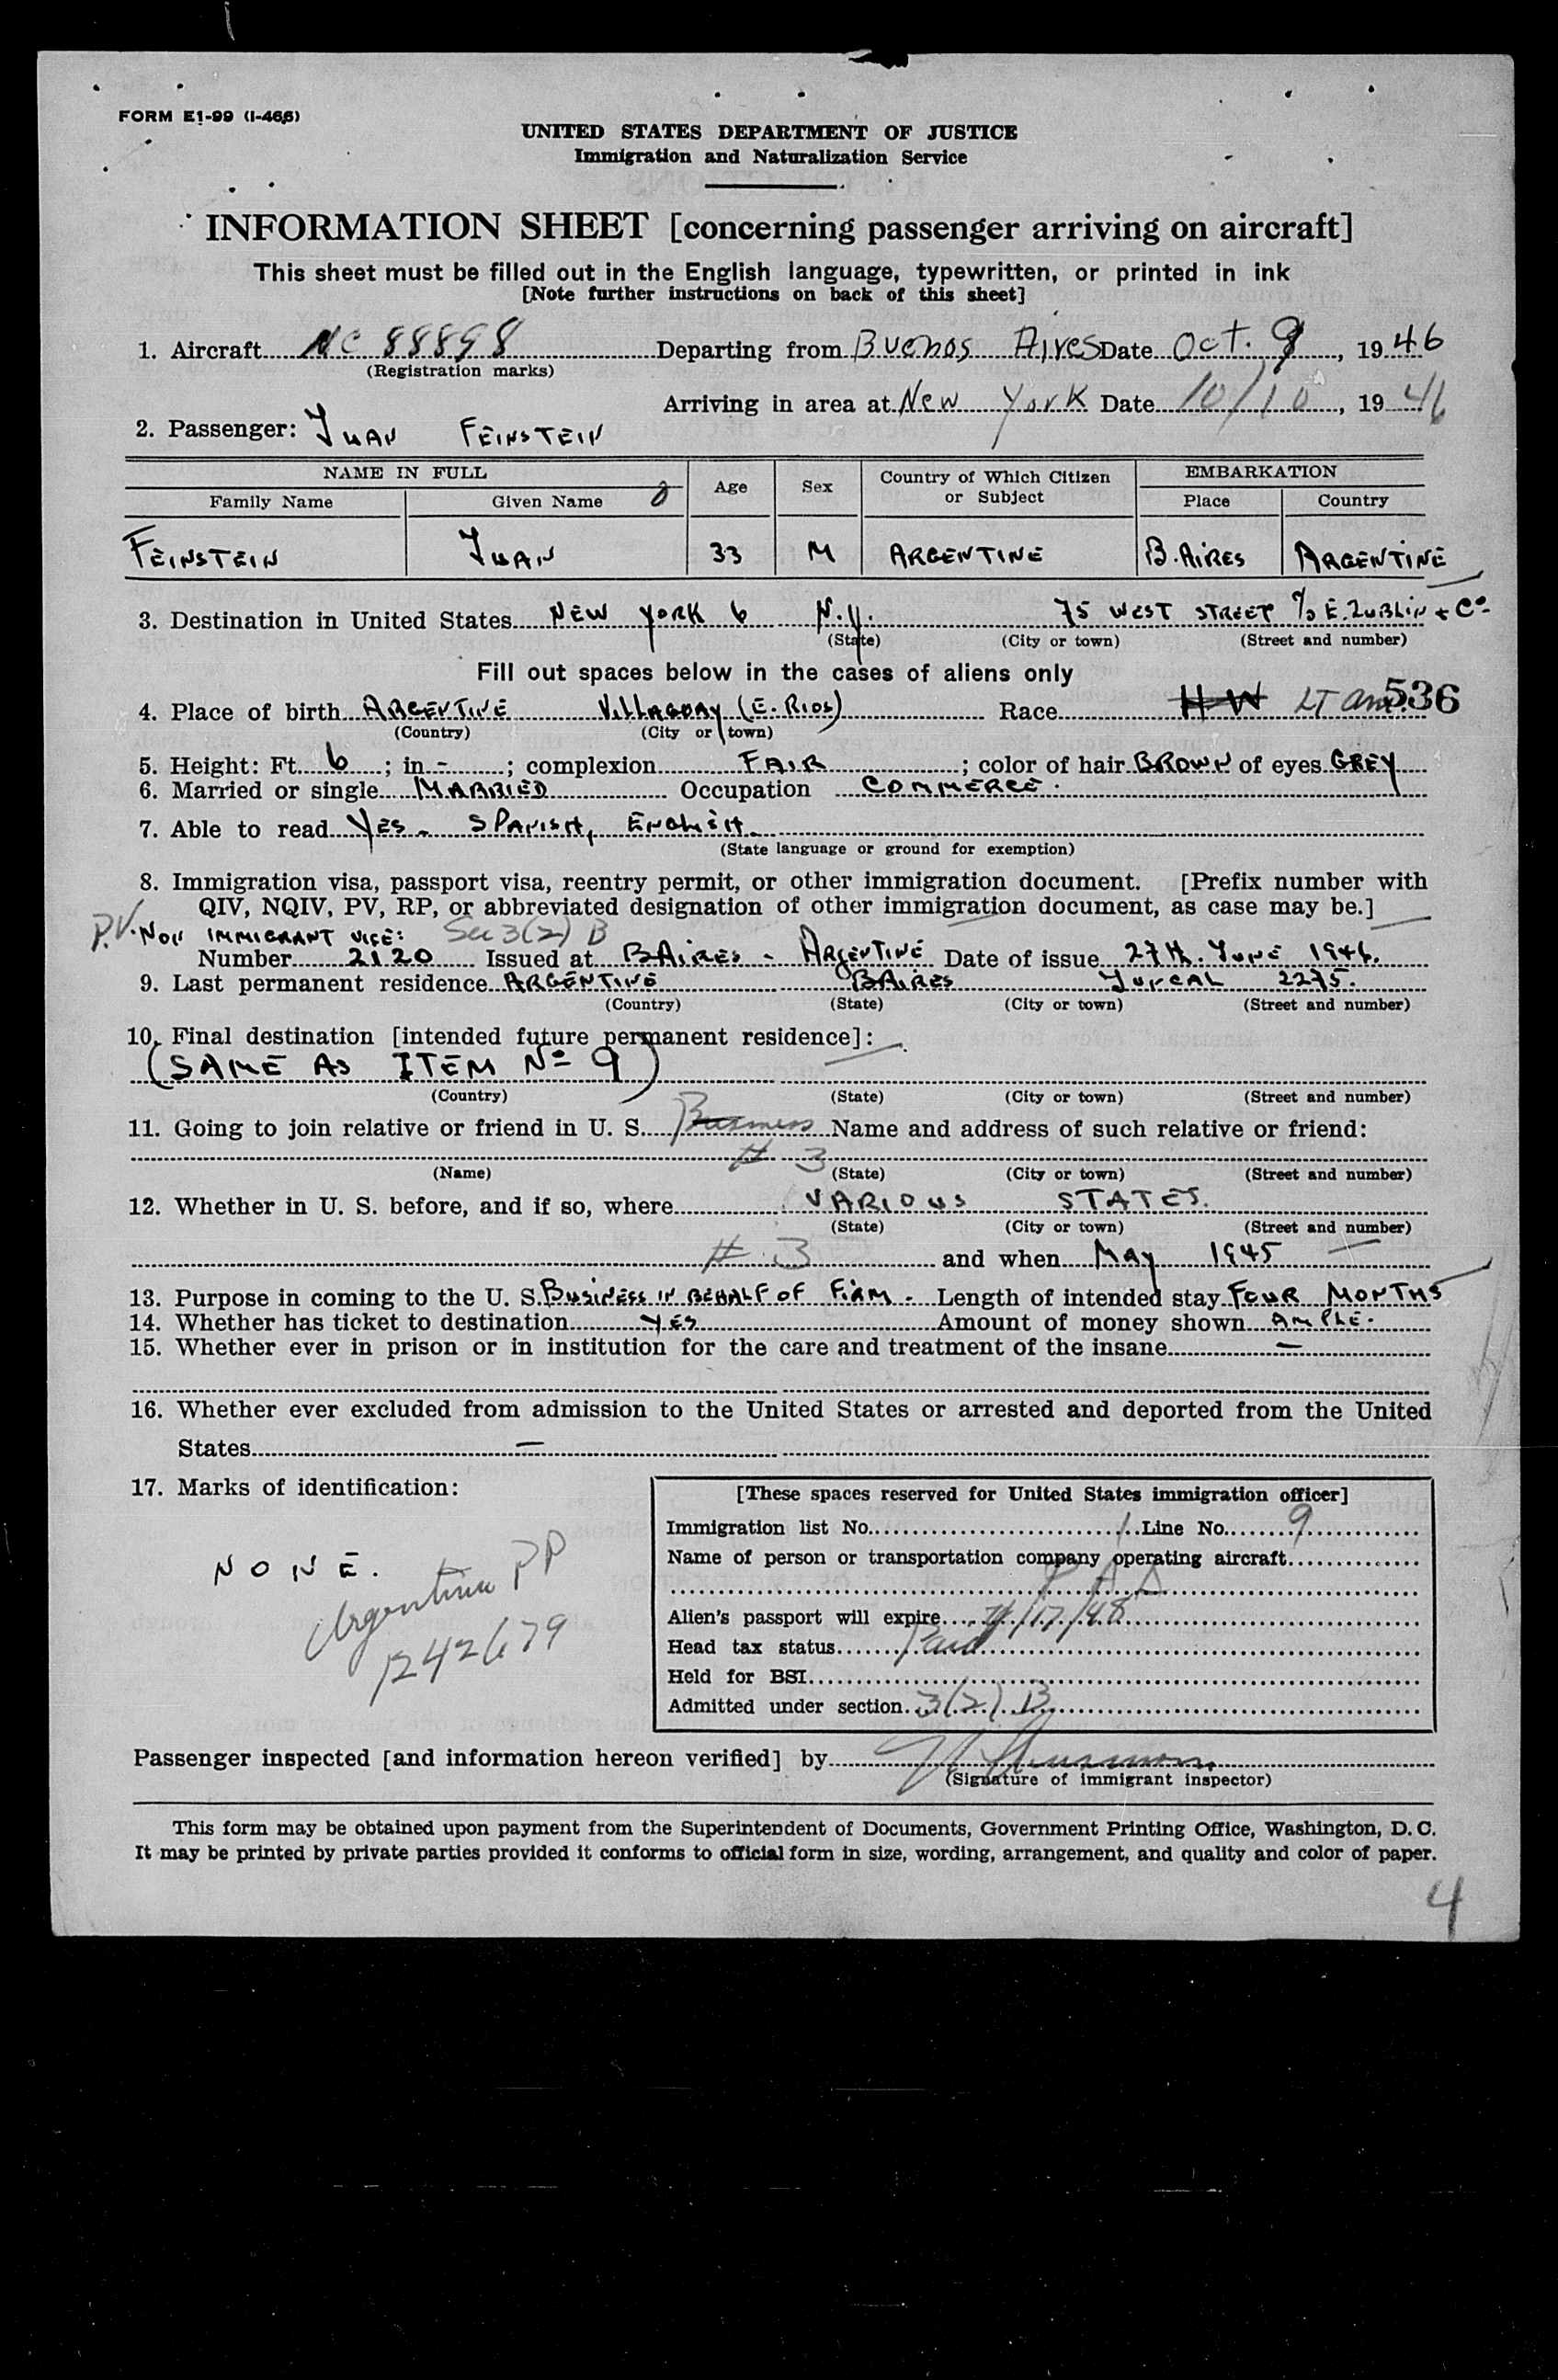 FORM E1-99 (I-466)
UNITED STATES DEPARTMENT OF JUSTICE
Immigration and Naturalization Service
INFORMATION SHEET [concerning passenger arriving on aircraft]
This sheet must be filled out in the English language, typewritten, or printed in ink
[Note further instructions on back of this sheet]
1. Aircraft NC 88898 Departing from Buenos Aires Date Oct. 9, 1946
(Registration marks)
Arriving in area at New York Date 10/10, 1946
2. Passenger: JUAN FEINSTEIN
NAME IN FULL Age Sex Country of Which Citizen or Subject EMBARKATION
Family Name Given Name Place Country
FEINSTEIN JUAN 33 M ARGENTINE B. AIRES ARGENTINE
3. Destination in United States NEW YORK 6 N.Y. 75 WEST STREET c/o E. ZUBLIN & Co
(State) (City or town) (Street and number)
Fill out spaces below in the cases of aliens only
4. Place of birth ARGENTINE VILLAGUAY (E. RIOS) Race HW LT am. 536
(Country) (City or town)
5. Height: Ft. 6; in -; complexion FAIR; color of hair BROWN of eyes GREY
6. Married or single MARRIED Occupation COMMERCE.
7. Able to read YES - SPANISH, ENGLISH.
(State language or ground for exemption)
8. Immigration visa, passport visa, reentry permit, or other immigration document. [Prefix number with
QIV, NQIV, PV, RP, or abbreviated designation of other immigration document, as case may be.]
P.V. NON IMMIGRANT VICE: Sec 3(2) B
Number 2120 Issued at BAIRES - ARGENTINE Date of issue 27th. JUNE 1946.
9. Last permanent residence ARGENTINE BAIRES JUNCAL 2275.
(Country) (State) (City or town) (Street and number)
10. Final destination [intended future permanent residence]:
(SAME AS ITEM No 9)
(Country) (State) (City or town) (Street and number)
11. Going to join relative or friend in U. S. Business Name and address of such relative or friend:
# 3
(Name) (State) (City or town) (Street and number)
12. Whether in U. S. before, and if so, where VARIOUS STATES.
(State) (City or town) (Street and number)
# 3 and when MAY 1945
13. Purpose in coming to the U. S. BUSINESS IN BEHALF OF FIRM. Length of intended stay FOUR MONTHS
14. Whether has ticket to destination YES Amount of money shown AMPLE.
15. Whether ever in prison or in institution for the care and treatment of the insane —
16. Whether ever excluded from admission to the United States or arrested and deported from the United
States —
17. Marks of identification:
NONE.
Argentina PP
242679
[These spaces reserved for United States immigration officer]
Immigration list No. 1 Line No. 9
Name of person or transportation company operating aircraft
P A A
Alien's passport will expire /17/48
Head tax status Paid
Held for BSI
Admitted under section 3(2) B
Passenger inspected [and information hereon verified] by
(Signature of immigrant inspector)
This form may be obtained upon payment from the Superintendent of Documents, Government Printing Office, Washington, D. C.
It may be printed by private parties provided it conforms to official form in size, wording, arrangement, and quality and color of paper.
4